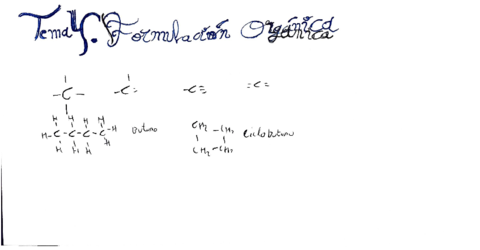 Tema 4. Formulación Orgánica
-C- -C= -C≡ =C=
H H H H
H-C-C-C-C-H butano
H H H H
CH2-CH2
CH2-CH2 Ciclobutano